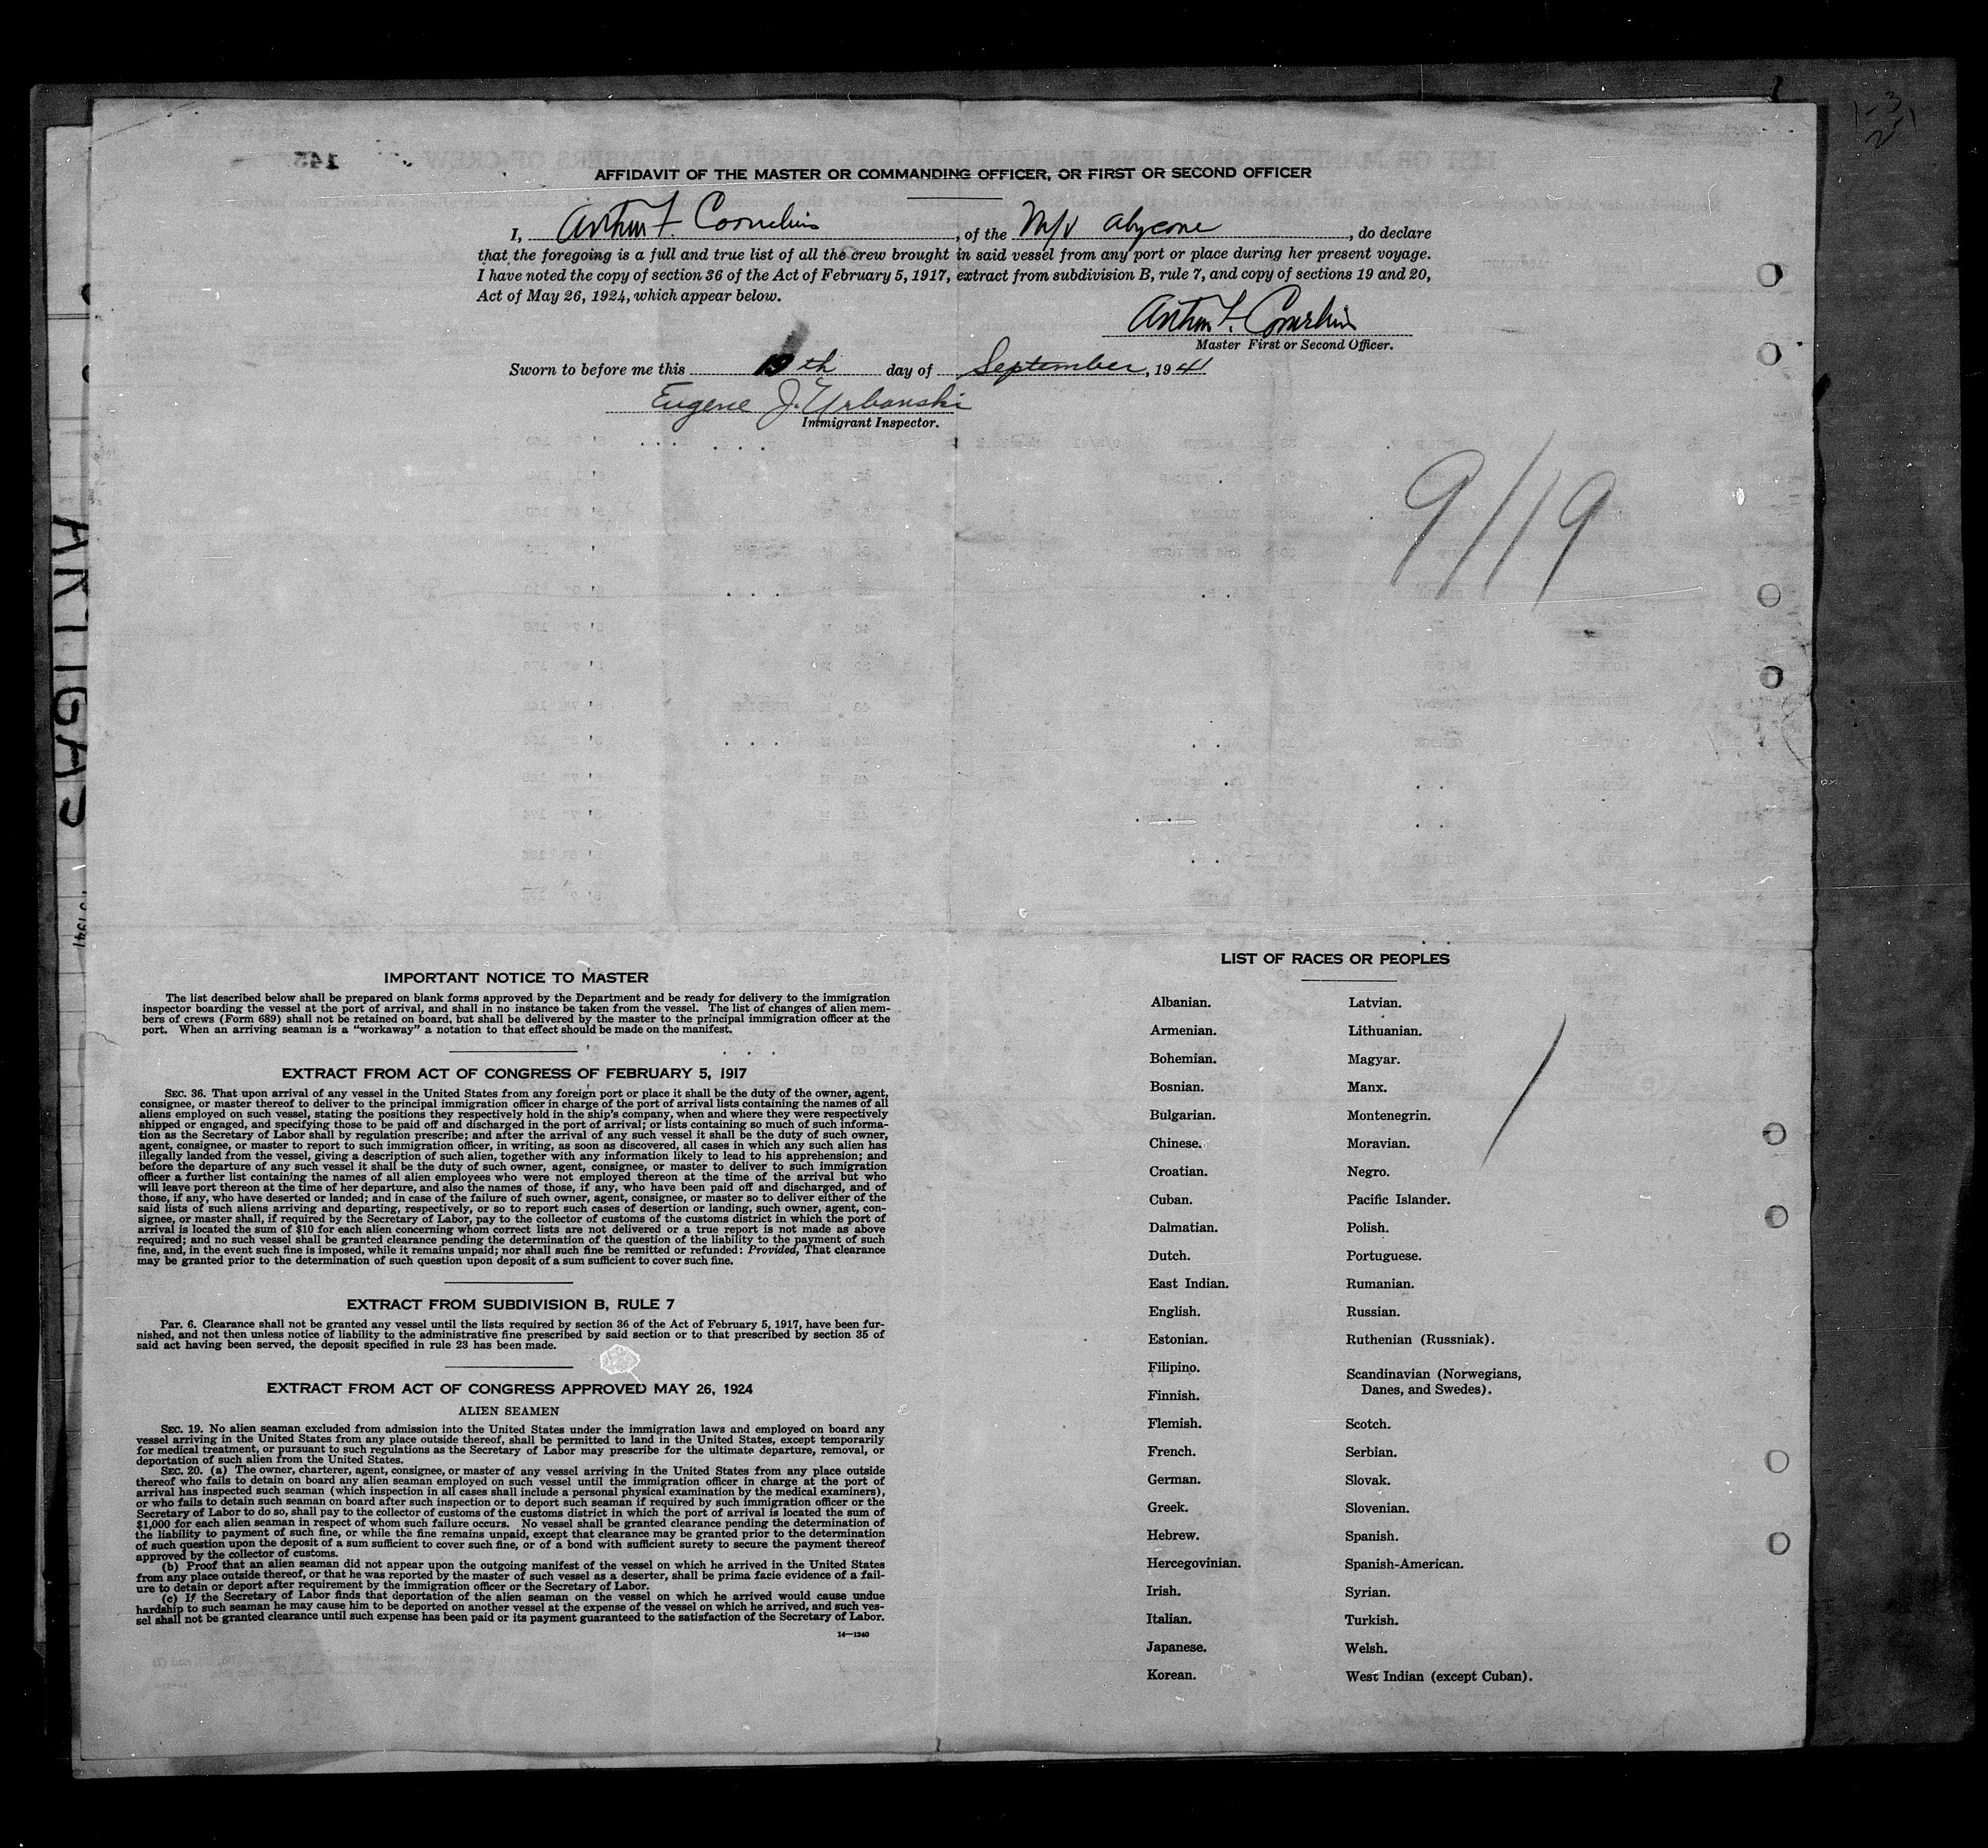 AFFIDAVIT OF THE MASTER OR COMMANDING OFFICER, OR FIRST OR SECOND OFFICER
I, Arthur F. Cornelius, of the M/V Alycone, do declare
that the foregoing is a full and true list of all the crew brought in said vessel from any port or place during her present voyage.
I have noted the copy of section 36 of the Act of February 5, 1917, extract from subdivision B, rule 7, and copy of sections 19 and 20,
Act of May 26, 1924, which appear below.
Arthur F. Cornelius
Master First or Second Officer.
Sworn to before me this 19th day of September, 1941
Eugene J. Urbanski
Immigrant Inspector.
9/19
IMPORTANT NOTICE TO MASTER
The list described below shall be prepared on blank forms approved by the Department and be ready for delivery to the immigration
inspector boarding the vessel at the port of arrival, and shall in no instance be taken from the vessel. The list of changes of alien mem-
bers of crews (Form 689) shall not be retained on board, but shall be delivered by the master to the principal immigration officer at the
port. When an arriving seaman is a "workaway" a notation to that effect should be made on the manifest.
EXTRACT FROM ACT OF CONGRESS OF FEBRUARY 5, 1917
SEC. 36. That upon arrival of any vessel in the United States from any foreign port or place it shall be the duty of the owner, agent,
consignee, or master thereof to deliver to the principal immigration officer in charge of the port of arrival lists containing the names of all
aliens employed on such vessel, stating the positions they respectively hold in the ship's company, when and where they were respectively
shipped or engaged, and specifying those to be paid off and discharged in the port of arrival; or lists containing so much of such informa-
tion as the Secretary of Labor shall by regulation prescribe; and after the arrival of any such vessel it shall be the duty of such owner,
agent, consignee, or master to report to such immigration officer, in writing, as soon as discovered, all cases in which any such alien has
illegally landed from the vessel, giving a description of such alien, together with any information likely to lead to his apprehension; and
before the departure of any such vessel it shall be the duty of such owner, agent, consignee, or master to deliver to such immigration
officer a further list containing the names of all alien employees who were not employed thereon at the time of the arrival but who
will leave port thereon at the time of her departure, and also the names of those, if any, who have been paid off and discharged, and of
those, if any, who have deserted or landed; and in case of the failure of such owner, agent, consignee, or master so to deliver either of the
said lists of such aliens arriving and departing, respectively, or so to report such cases of desertion or landing, such owner, agent, con-
signee, or master shall, if required by the Secretary of Labor, pay to the collector of customs of the customs district in which the port of
arrival is located the sum of $10 for each alien concerning whom correct lists are not delivered or a true report is not made as above
required; and no such vessel shall be granted clearance pending the determination of the question of the liability to the payment of such
fine, and, in the event such fine is imposed, while it remains unpaid; nor shall such fine be remitted or refunded: Provided, That clearance
may be granted prior to the determination of such question upon deposit of a sum sufficient to cover such fine.
EXTRACT FROM SUBDIVISION B, RULE 7
Par. 6. Clearance shall not be granted any vessel until the lists required by section 36 of the Act of February 5, 1917, have been fur-
nished, and not then unless notice of liability to the administrative fine prescribed by said section or to that prescribed by section 35 of
said act having been served, the deposit specified in rule 23 has been made.
EXTRACT FROM ACT OF CONGRESS APPROVED MAY 26, 1924
ALIEN SEAMEN
SEC. 19. No alien seaman excluded from admission into the United States under the immigration laws and employed on board any
vessel arriving in the United States from any place outside thereof, shall be permitted to land in the United States, except temporarily
for medical treatment, or pursuant to such regulations as the Secretary of Labor may prescribe for the ultimate departure, removal, or
deportation of such alien from the United States.
SEC. 20. (a) The owner, charterer, agent, consignee, or master of any vessel arriving in the United States from any place outside
thereof who fails to detain on board any alien seaman employed on such vessel until the immigration officer in charge at the port of
arrival has inspected such seaman (which inspection in all cases shall include a personal physical examination by the medical examiners),
or who fails to detain such seaman on board after such inspection or to deport such seaman if required by such immigration officer or the
Secretary of Labor to do so, shall pay to the collector of customs of the customs district in which the port of arrival is located the sum of
$1,000 for each alien seaman in respect of whom such failure occurs. No vessel shall be granted clearance pending the determination of
the liability to payment of such fine, or while the fine remains unpaid, except that clearance may be granted prior to the determination
of such question upon the deposit of a sum sufficient to cover such fine, or of a bond with sufficient surety to secure the payment thereof
approved by the collector of customs.
(b) Proof that an alien seaman did not appear upon the outgoing manifest of the vessel on which he arrived in the United States
from any place outside thereof, or that he was reported by the master of such vessel as a deserter, shall be prima facie evidence of a fail-
ure to detain or deport after requirement by the immigration officer or the Secretary of Labor.
(c) If the Secretary of Labor finds that deportation of the alien seaman on the vessel on which he arrived would cause undue
hardship to such seaman he may cause him to be deported on another vessel at the expense of the vessel on which he arrived, and such ves-
sel shall not be granted clearance until such expense has been paid or its payment guaranteed to the satisfaction of the Secretary of Labor.
14—1240
LIST OF RACES OR PEOPLES
Albanian.
Armenian.
Bohemian.
Bosnian.
Bulgarian.
Chinese.
Croatian.
Cuban.
Dalmatian.
Dutch.
East Indian.
English.
Estonian.
Filipino.
Finnish.
Flemish.
French.
German.
Greek.
Hebrew.
Hercegovinian.
Irish.
Italian.
Japanese.
Korean.
Latvian.
Lithuanian.
Magyar.
Manx.
Montenegrin.
Moravian.
Negro.
Pacific Islander.
Polish.
Portuguese.
Rumanian.
Russian.
Ruthenian (Russniak).
Scandinavian (Norwegians,
Danes, and Swedes).
Scotch.
Serbian.
Slovak.
Slovenian.
Spanish.
Spanish-American.
Syrian.
Turkish.
Welsh.
West Indian (except Cuban).